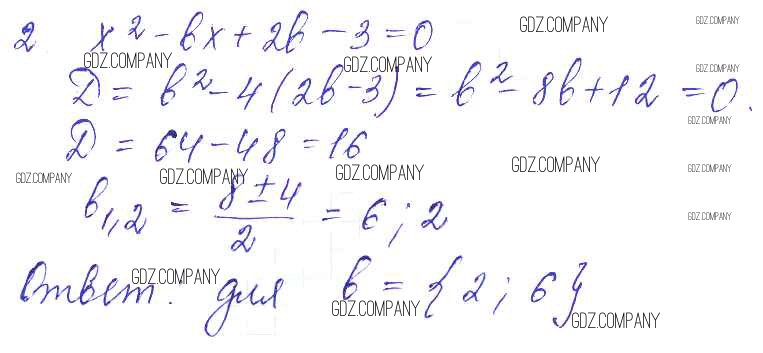 2 x² - bx + 2b - 3 = 0 GDZ.COMPANY GDZ.COMPANY
GDZ.COMPANY GDZ.COMPANY GDZ.COMPANY
D = b² - 4(2b - 3) = b² - 8b + 12 = 0.
GDZ.COMPANY
D = 64 - 48 = 16
GDZ.COMPANY GDZ.COMPANY GDZ.COMPANY GDZ.COMPANY GDZ.COMPANY
b₁,₂ = (8 ± 4)/2 = 6; 2
GDZ.COMPANY
GDZ.COMPANY
Ответ. для b = {2; 6}
GDZ.COMPANY
GDZ.COMPANY